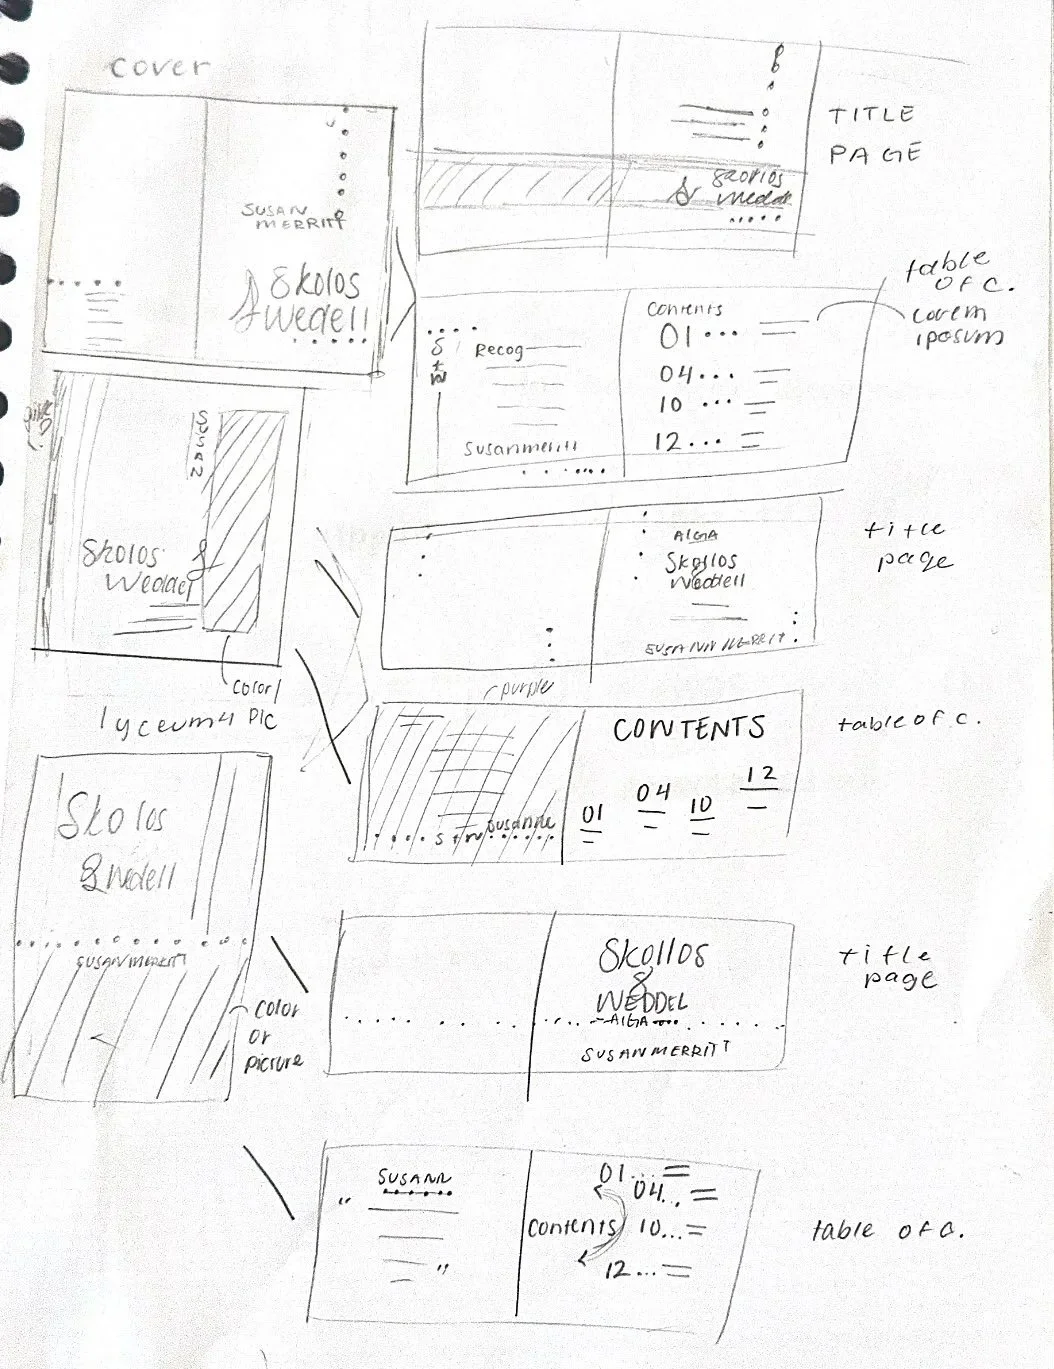 cover
SUSAN
MERRITT
Skolos
& Wedell
TITLE
PAGE
Skolos
& Weddel
table
of c.
Lorem
iposum
Contents
01 ...
04 ...
10 ...
12 ...
S
+
W
Recog
Susanmerritt
SUSAN
Skolos &
Weddel
color/
lyceum4 PIC
title
page
AIGA
Skollos
Weddell
SUSANN MERRIT
purple
table of c.
CONTENTS
01
04
10
12
s + w
Susanne
Skolos
& Wedell
SUSANMERRITT
color
or
picture
title
page
Skollos
&
WEDDEL
AIGA
SUSANMERRITT
SUSANN
“
”
01 ...
04 ...
Contents 10 ...
12 ...
table of c.